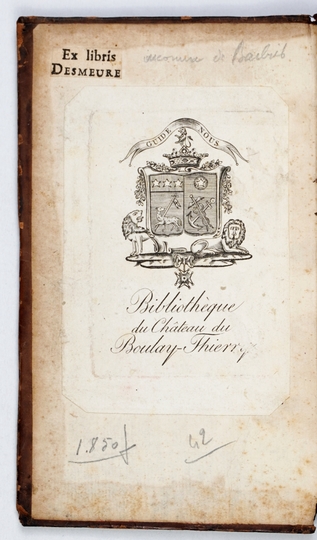 Ex libris
DESMEURE
GUIDE NOUS
Bibliothèque
du Château du
Boulay-Thierry
1.850f
42